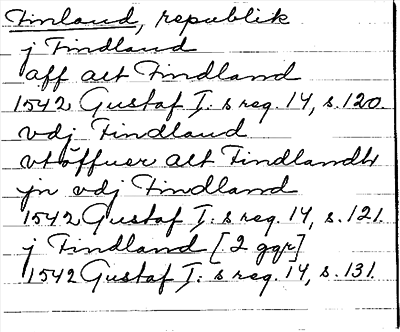 Finland, republik
j Findland
aff alt Findland
1542 Gustaf I: s reg. 14, s. 120.
vdj Findland
vtöffuer alt Findlandh
jn vdj Findland
1542 Gustaf I: s reg. 14, s. 121.
j Findland [2 ggr]
1542 Gustaf I: s reg. 14, s. 131.